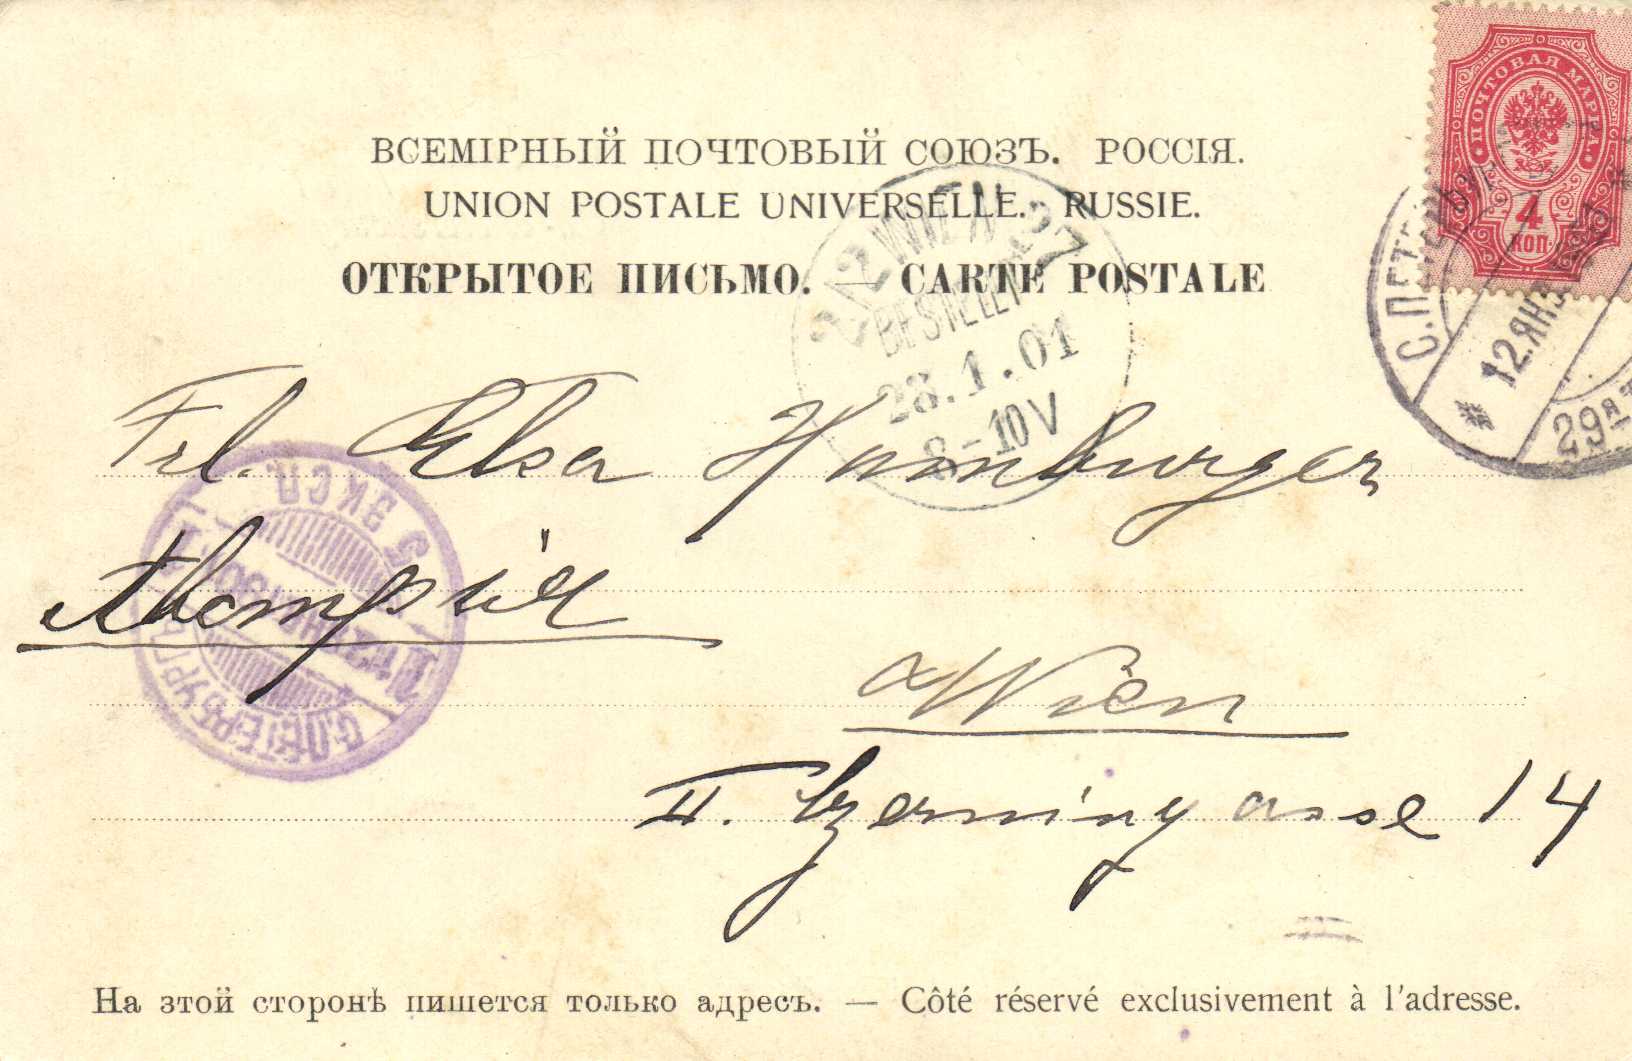 ВСЕМІРНЫЙ ПОЧТОВЫЙ СОЮЗЪ. РОССІЯ.
UNION POSTALE UNIVERSELLE. RUSSIE.
ОТКРЫТОЕ ПИСЬМО. — CARTE POSTALE
ПОЧТОВАЯ МАРКА
4
КОП.
С.ПЕТЕРБУРГ
12.ЯНВ
29
2/2 WIEN 27
BESTELLT
28.1.01
8-10V
Frl. Elsa Hamburger
Австрія
Wien
II. Czerningasse 14
С.ПЕТЕРБУРГЪ
ЭКСП
На этой сторонѣ пишется только адресъ. — Côté réservé exclusivement à l'adresse.